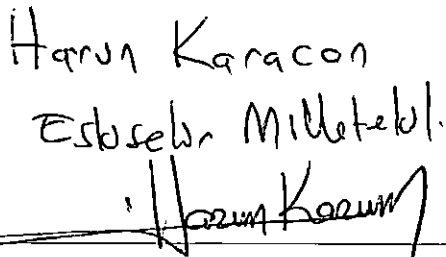 Harun Karacan
Eskişehir Milletvekil.
Harun Karacan